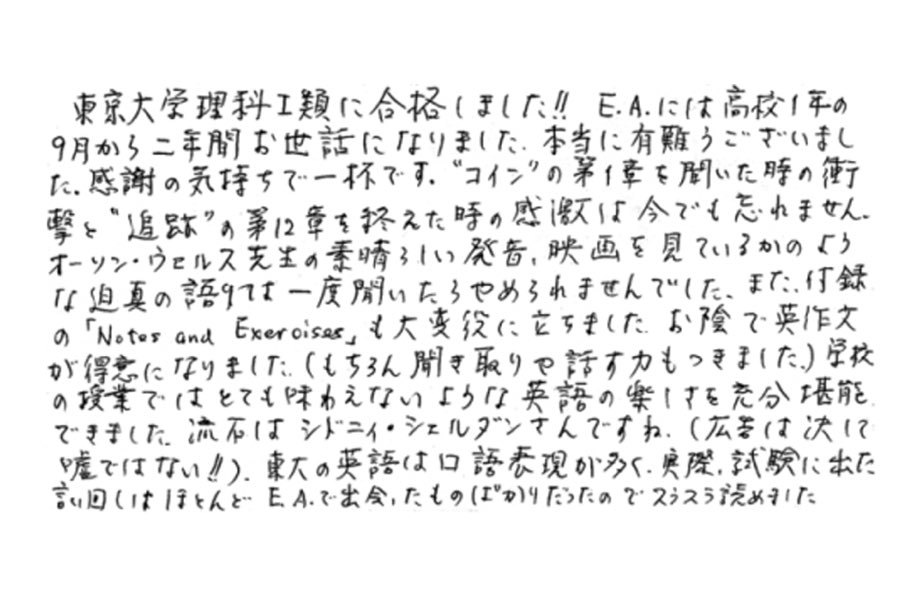 東京大学理科I類に合格しました!! E.A.には高校1年の
9月から二年間お世話になりました。本当に有難うございまし
た。感謝の気持ちで一杯です。“コイン”の第1章を聞いた時の衝
撃と“追跡”の第12章を終えた時の感激は今でも忘れません。
オーソン・ウェルズ先生の素晴らしい発音、映画を見ているかのよう
な迫真の語りは一度聞いたらやめられませんでした。また、付録
の「Notes and Exercises」も大変役に立ちました。お陰で英作文
が得意になりました。(もちろん聞き取りや話す力もつきました。)学校
の授業ではとても味わえないような英語の楽しさを充分堪能
できました。流石はシドニィ・シェルダンさんですね。(広告は決して
嘘ではない!!)。東大の英語は口語表現が多く、実際、試験に出た
言い回しはほとんどE.A.で出会ったものばかりだったのでスラスラ読めました